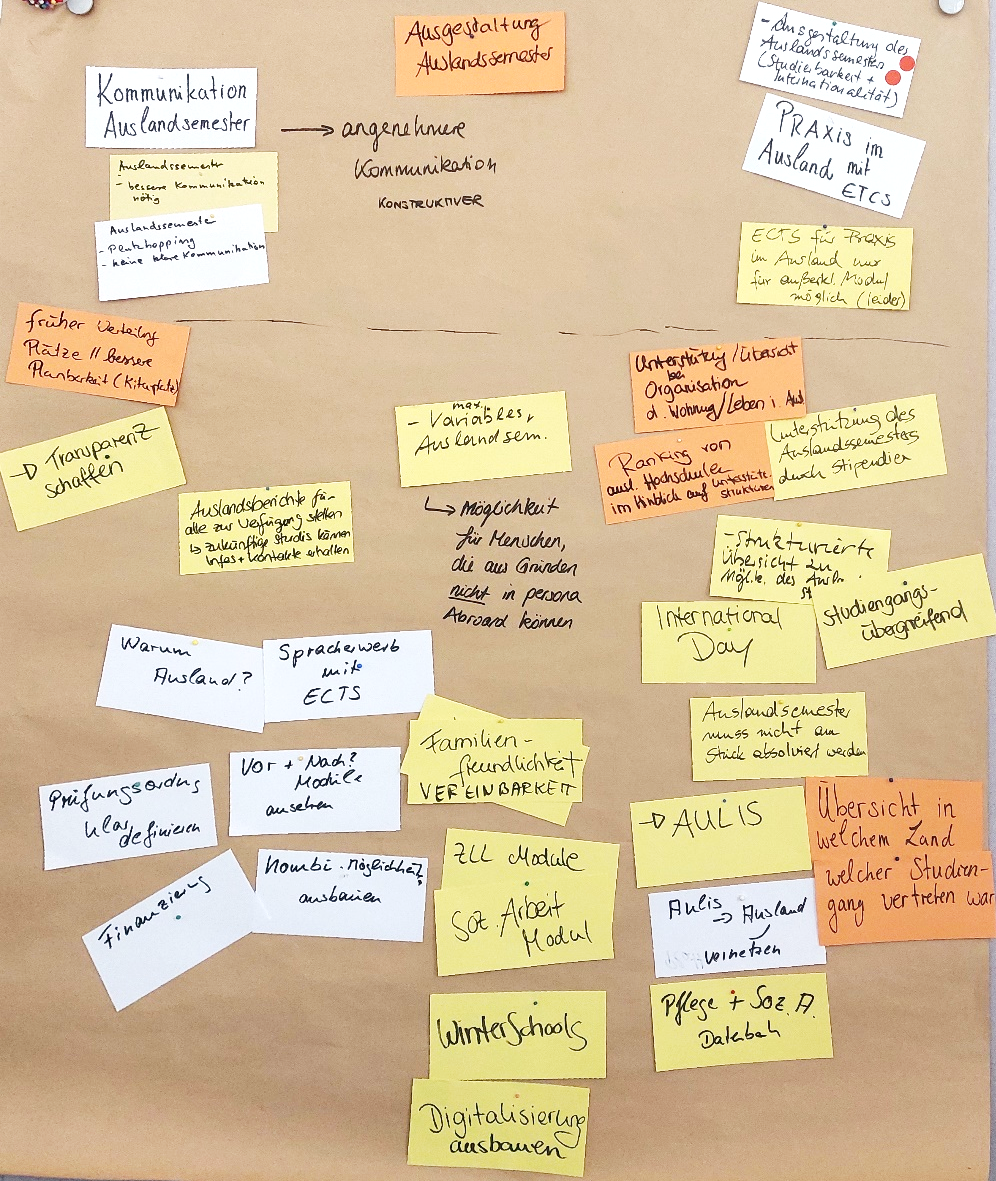 Ausgestaltung
Auslandssemester
Kommunikation
Auslandsemester
→ angenehmere
Kommunikation
KONSTRUKTIVER
Auslandssemester
- bessere Kommunikation
nötig
Auslandssemester
-
- keine klare Kommunikation
- Ausgestaltung des
Auslandssemesters
(Studierbarkeit +
Internationalität)
PRAXIS im
Ausland mit
ETCS
ECTS für Praxis
im Ausland nur
für außerkl. Modul
möglich (leider)
früher Verteilung
Plätze // bessere
Planbarkeit (Kitaplatz)
→ Transparenz
schaffen
Auslandsberichte für
alle zur Verfügung stellen
↳ zukünftige Studis können
Infos + Kontakte erhalten
max.
- Variables
Auslandsem.
↳ Möglichkeit
für Menschen,
die aus Gründen
nicht in persona
Abroad können
Unterstützung/Übersicht
bei
Organisation
d. Wohnung/Leben i. Ausl
Ranking von
ausl. Hochschulen
im Hinblick auf Unterstütz.
strukturen
Unterstützung des
Auslandssemesters
durch Stipendien
- Strukturierte
Übersicht zu
Möglk. des Ausln.
Studiengangs-
übergreifend
International
Day
Auslandsemester
muss nicht am
Stück absolviert werden
Warum
Ausland?
Spracherwerb
mit
ECTS
Prüfungsordnung
klar
definieren
Vor + Nach?
Module
ansehen
Finanzierung
Kombi-Möglichkeit
ausbauen
Familien-
freundlichkeit
VEREINBARKEIT
ZLL Module
Soz. Arbeit
Modul
WinterSchools
Digitalisierung
ausbauen
→ AULIS
Aulis
→ Ausland
vernetzen
Pflege + Soz. A.
Datenbank
Übersicht in
welchem Land
welcher Studien-
gang vertreten war